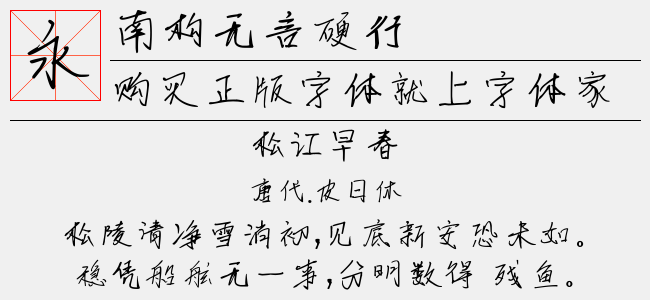 永
南构无言硬行
购买正版字体就上字体家
松江早春
唐代.皮日休
松陵清净雪消初,见底新安恐未如。
稳凭船舷无一事,分明数得 残鱼。